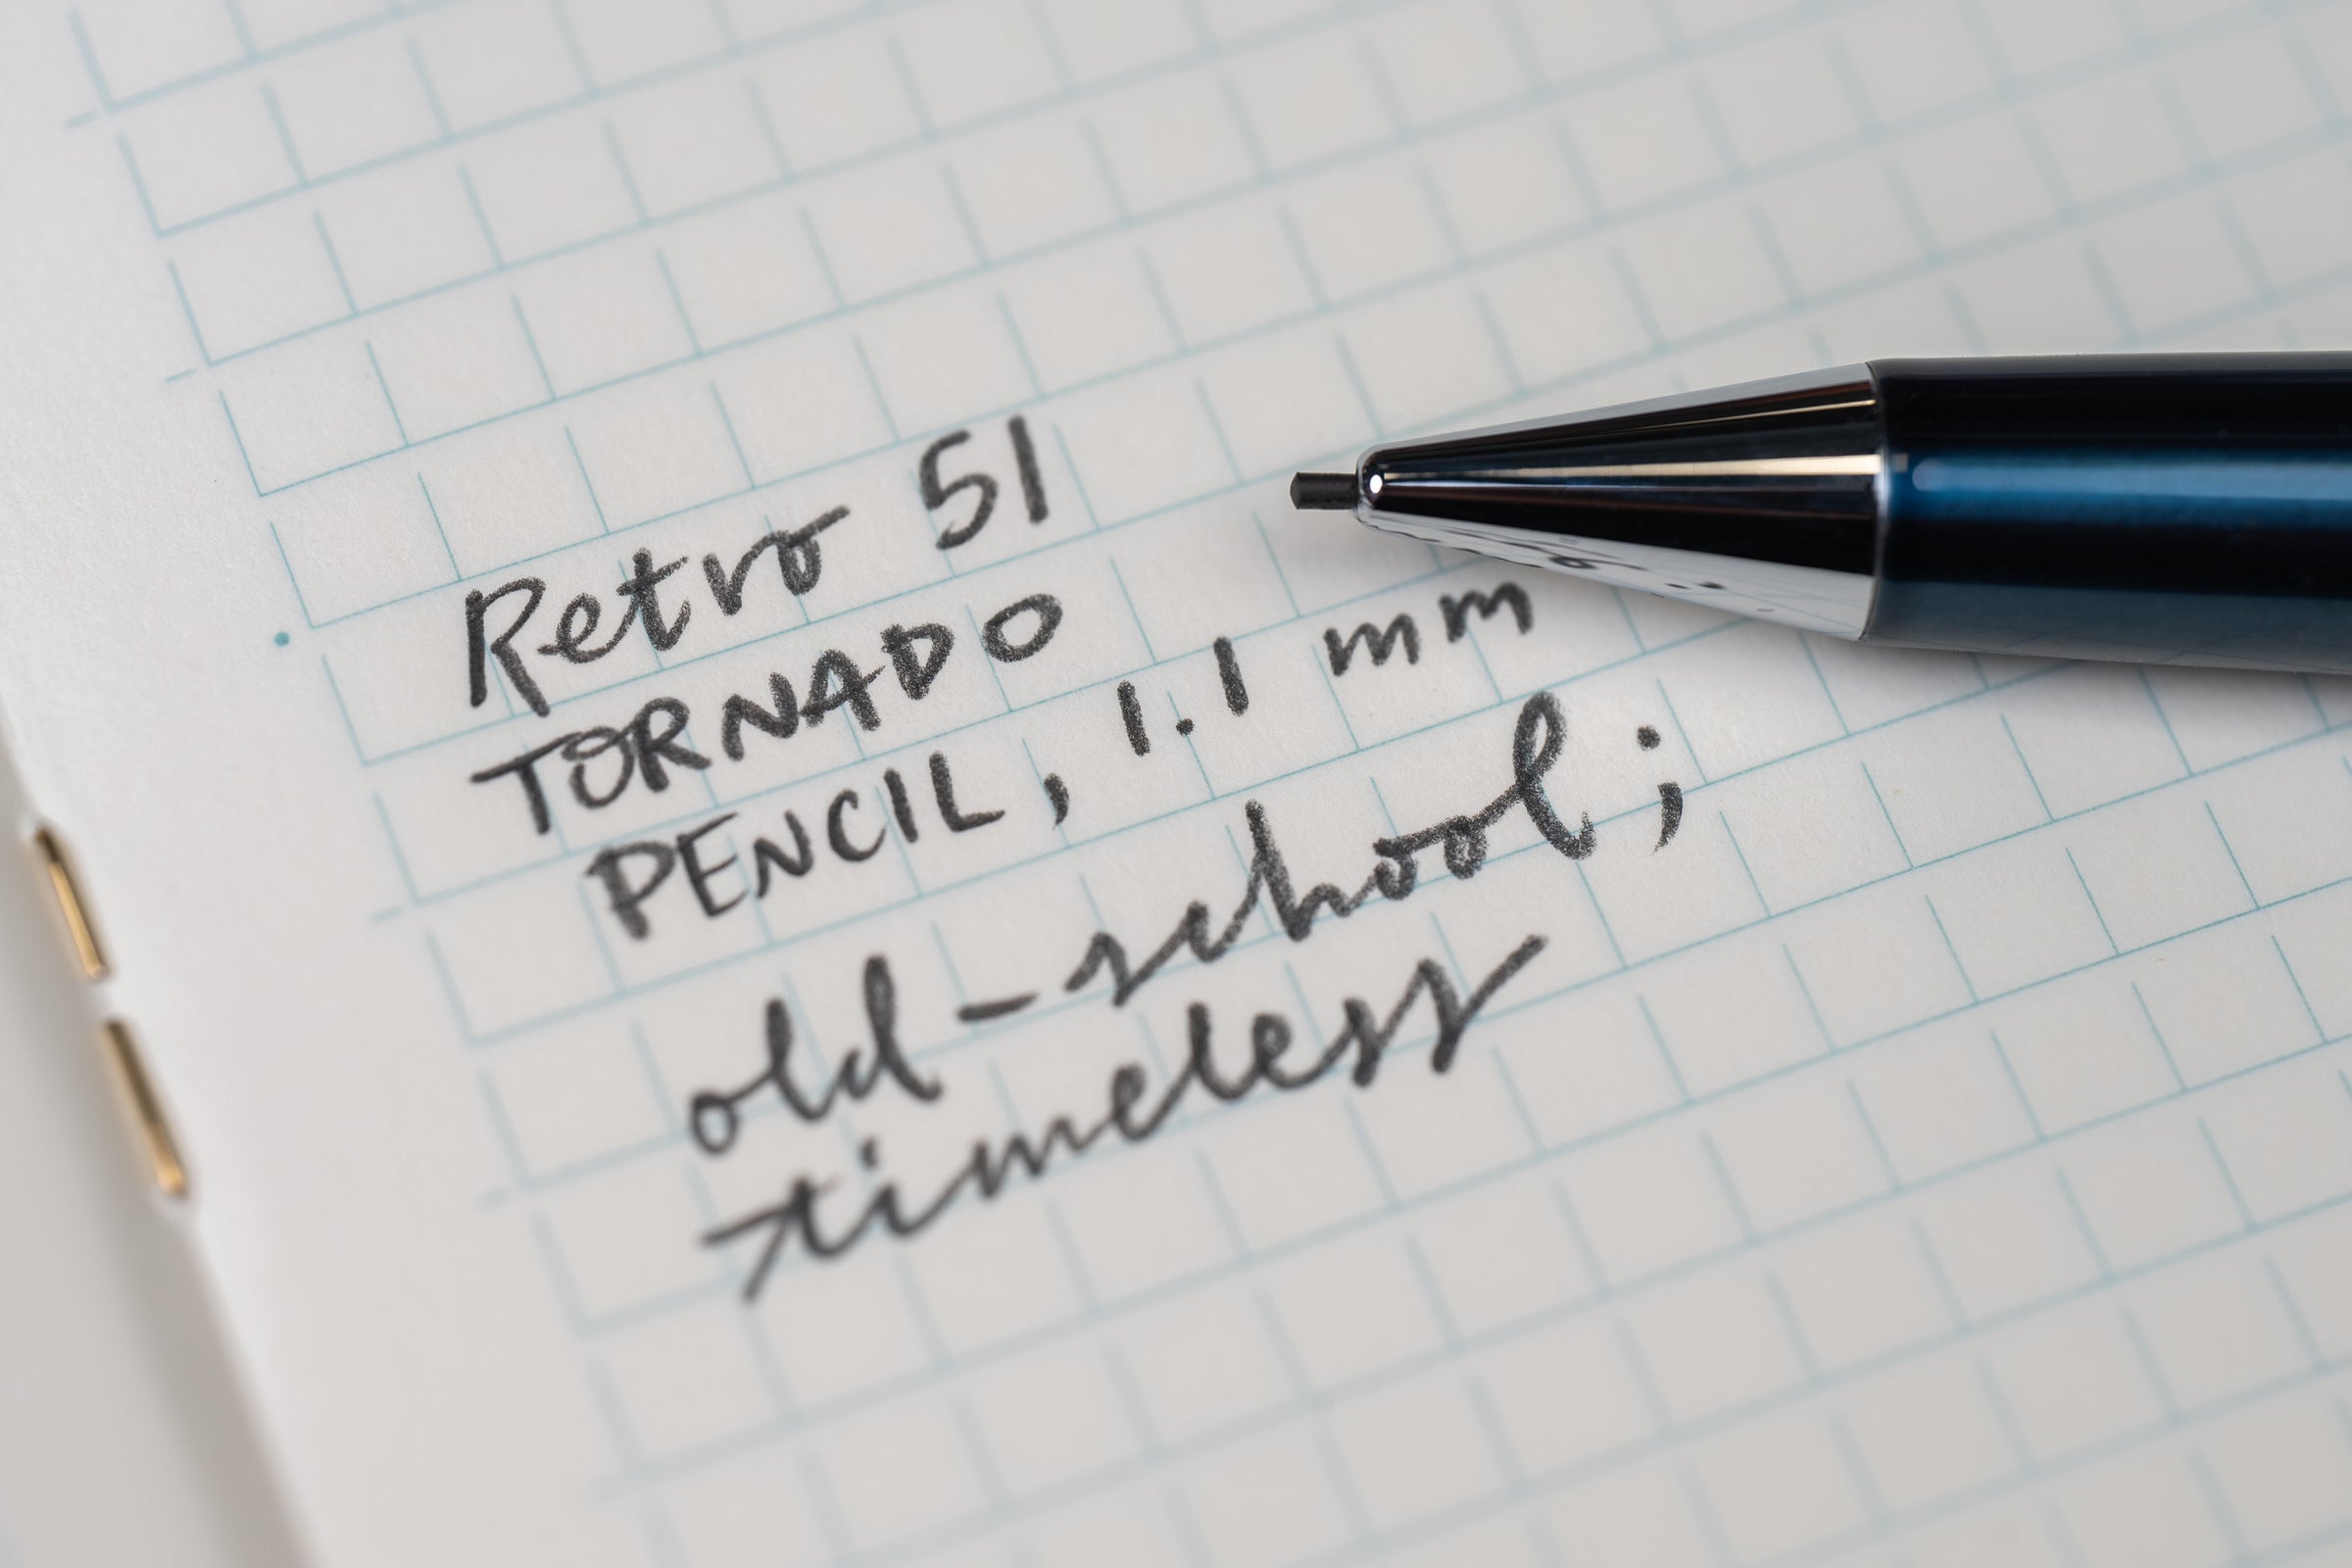 Retro 51
TORNADO
PENCIL, 1.1 mm
old-school;
timeless